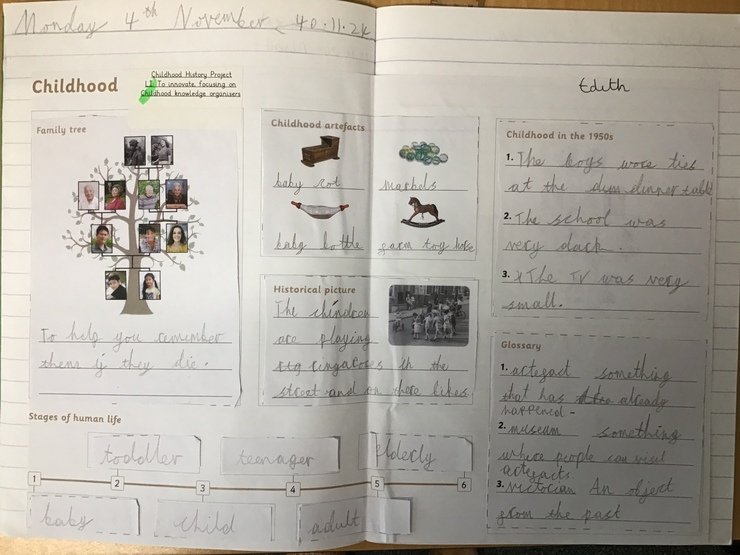 Monday 4th November 4.11.24
Childhood
Childhood History Project
LI: To innovate, focusing on
Childhood knowledge organisers
Edith
Family tree
To help you remember
them if they die.
Childhood artefacts
baby cot
marbels
baby bottle
farm toy hose
Historical picture
The chindren
are playing
ring ringaroses in the
street and on there bikes
Childhood in the 1950s
1. The boys wore ties
at the dinner table
2. The school was
very dark.
3. The TV was very
small.
Glossary
1. artefact something
that has already
happened -
2. museum something
where people can visit
artefacts.
3. victorian An object
from the past
Stages of human life
toddler
teenager
elderly
1
2
3
4
5
6
baby
child
adult